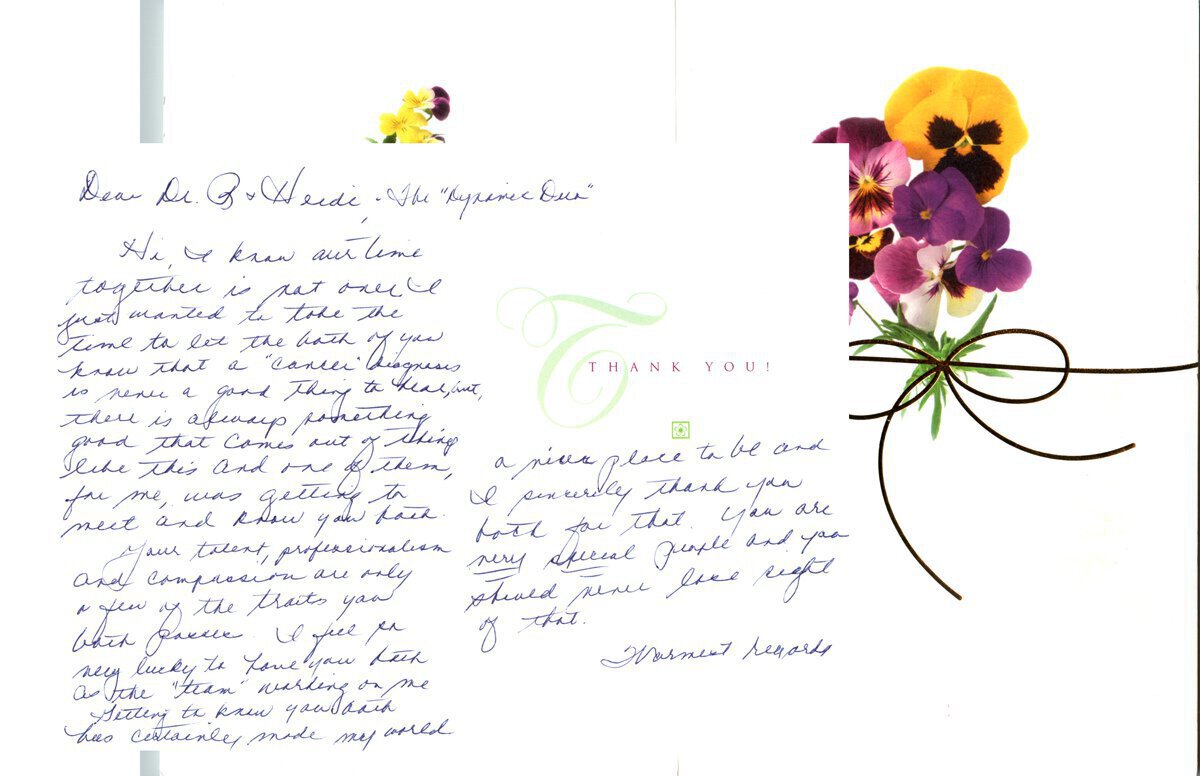 Dear Dr. B + Heidi, - The "Dynamic Duo"
Hi, I know our time
together is not over, I
just wanted to take the
time to let the both of you
know that a "cancer" diagnosis
is never a good thing to hear, but,
there is always something
good that comes out of things
like this and one of them,
for me, was getting to
meet and know you both.
Your talent, professionalism
and compassion are only
a few of the traits you
both possess. I feel so
very lucky to have you both
as the "team" working on me
Getting to know you both
has certainly made my world
T
THANK YOU!
a nicer place to be and
I sincerely thank you
both for that. You are
very special people and you
should never lose sight
of that.
Warmest regards